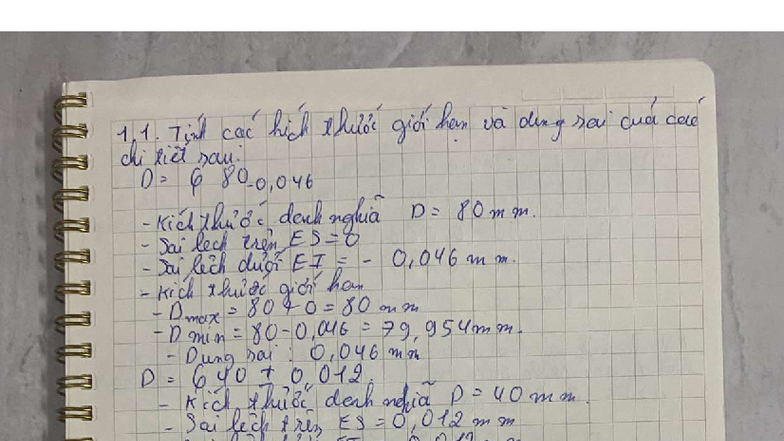 1.1. Tính các kích thước giới hạn và dung sai của các
chi tiết sau:
D = ϕ 80 -0,046
- Kích thước danh nghĩa D = 80 mm.
- Sai lệch trên ES = 0
- Sai lệch dưới EI = - 0,046 mm.
- Kích thước giới hạn
- Dmax = 80 + 0 = 80 mm
- Dmin = 80 - 0,046 = 79,954 mm.
- Dung sai : 0,046 mm
D = ϕ 40 + 0,012
- Kích thước danh nghĩa D = 40 mm.
- Sai lệch trên ES = 0,012 mm